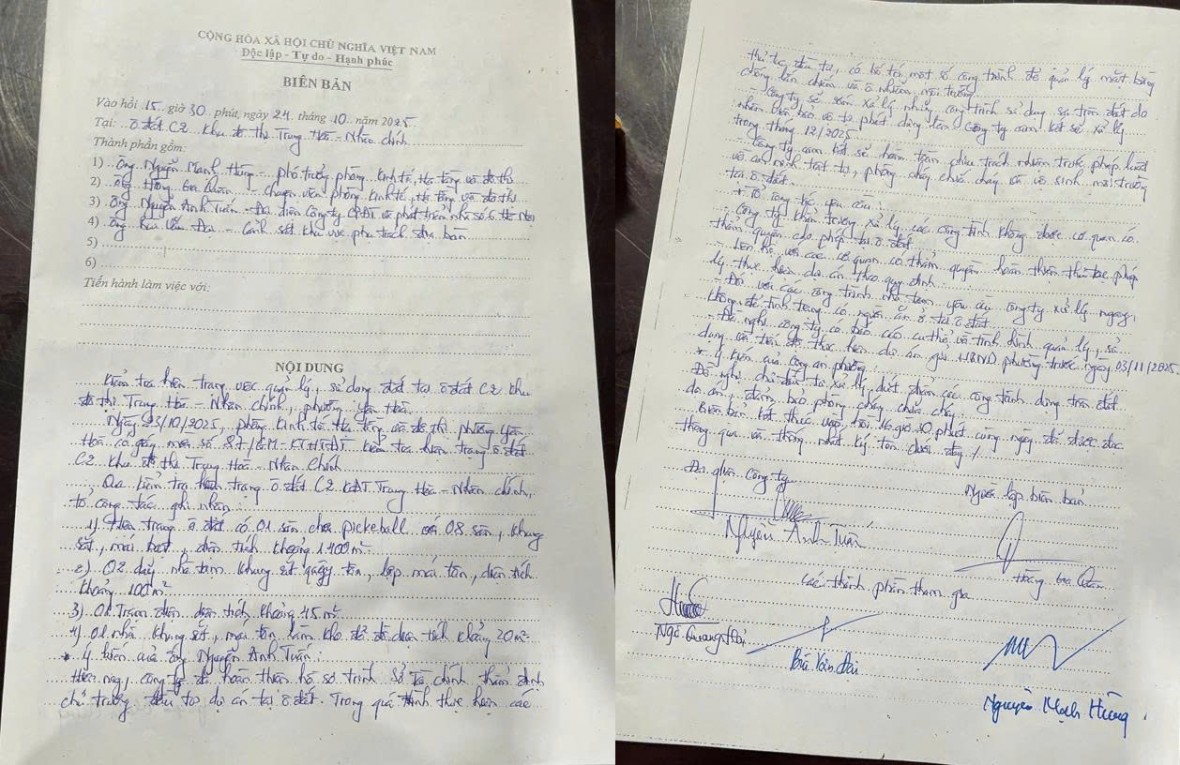 CỘNG HÒA XÃ HỘI CHỦ NGHĨA VIỆT NAM
Độc lập - Tự do - Hạnh phúc
BIÊN BẢN
Vào hồi 15 giờ 30 phút, ngày 24 tháng 10 năm 2025
Tại: ô đất C2 Khu đô thị Trung Hòa - Nhân Chính
Thành phần gồm:
1) Ông Nguyễn Mạnh Hùng - phó trưởng phòng kinh tế, hạ tầng và đô thị
2) Ông Hoàng Gia Quân - chuyên viên phòng kinh tế, hạ tầng và đô thị
3) Ông Nguyễn Anh Tuấn - Đại diện Công ty CPĐT và phát triển nhà số 6 Hà Nội
4) Ông Bùi Văn - Cảnh sát khu vực phụ trách địa bàn
5)
6)
Tiến hành làm việc với:
NỘI DUNG
Kiểm tra hiện trạng việc quản lý, sử dụng đất tại ô đất C2 khu
đô thị Trung Hòa - Nhân Chính, phường Yên Hòa.
Ngày 23/10/2025, phòng kinh tế hạ tầng và đô thị phường Yên
Hòa có giấy mời số 87/GM-KTHTĐT kiểm tra hiện trạng ô đất
C2 Khu đô thị Trung Hòa - Nhân Chính
Qua kiểm tra hiện trạng ô đất C2 KĐT Trung Hòa - Nhân Chính,
tổ công tác ghi nhận
1) Hiện trạng ô đất có 01 sân chơi pickeball 08 sân, khung
sắt, mái bạt, diện tích khoảng 1.400m²
2) 02 dãy nhà tạm khung sắt quây tôn, lợp mái tôn, diện tích
khoảng 100m²
3) 01 Trạm điện diện tích khoảng 45m²
4) 01 nhà khung sắt, mái tôn làm kho để đồ diện tích khoảng 20m²
* Ý kiến của ông Nguyễn Anh Tuấn:
Hiện nay, công ty đã hoàn thiện hồ sơ trình Sở Tài chính thẩm định
chủ trương đầu tư dự án tại ô đất. Trong quá trình thực hiện các
thủ tục đầu tư, có bố trí một số công trình để quản lý mặt bằng
chống lấn chiếm và ô nhiễm môi trường.
- Công ty sẽ xử lý những công trình sử dụng trên đất do
nhân dân và tự phát dựng lên. Công ty cam kết sẽ xử lý
trong tháng 12/2025.
- Công ty cam kết sẽ hoàn toàn chịu trách nhiệm trước pháp luật
về an ninh trật tự, phòng cháy chữa cháy và vệ sinh môi trường
tại ô đất.
+ Tổ công tác yêu cầu:
- Công ty khẩn trương xử lý các công trình không được cơ quan có
thẩm quyền cho phép tại ô đất
- Liên hệ với các cơ quan có thẩm quyền hoàn thiện thủ tục pháp
lý thực hiện dự án theo quy định.
- Đối với các công trình nhà tạm yêu cầu công ty xử lý ngay,
không để tình trạng có người ăn ở tại ô đất
- Đề nghị công ty có báo cáo cụ thể về tình hình quản lý, sử
dụng và tiến độ thực hiện dự án gửi UBND phường trước ngày 03/11/2025
* Ý kiến của công an phường:
Đề nghị chủ đầu tư xử lý dứt điểm các công trình dựng trên đất
dự án, đảm bảo phòng cháy, chữa cháy.
Biên bản kết thúc vào hồi 16 giờ 10 phút cùng ngày đã được đọc
thông qua và thống nhất ký tên dưới đây /
Đại diện công ty
Người lập biên bản
Nguyễn Anh Tuấn
Hoàng Gia Quân
Các thành phần tham gia
Ngô Quang
Bùi Văn
Nguyễn Mạnh Hùng